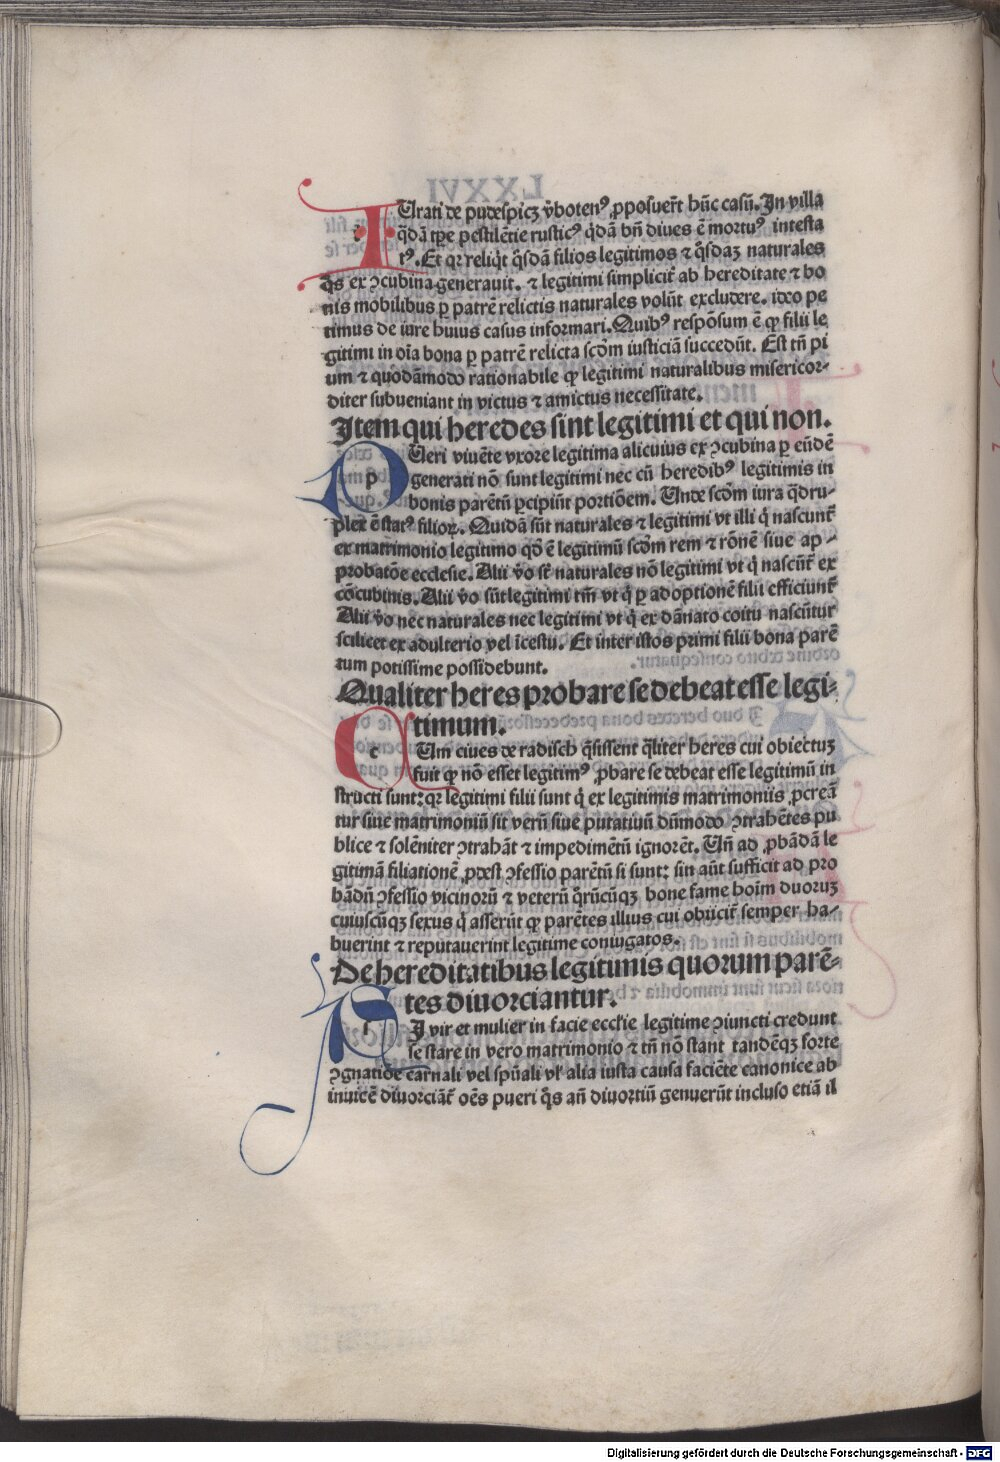 IUrati de pudespicz v̉boteñ ꝓposuer̃t hũc casũ. In villa
q̃dã tꝑe pestilẽtie rusticꝰ q̃dã bñ diues ẽ mortuꝰ intesta
tꝰ. Et qꝛ reliq̇t q̃sdã filios legitimos ⁊ q̃sdaꝫ naturales
q̃s ex ↄcubina generauit. ⁊ legitimi simplicit̃ ab hereditate ⁊ bo
nis mobilibus ꝑ patrẽ relictis naturales volũt excludere. ideo pe
timus de iure huius casus informari. Quibꝰ respõsum ẽ ꝙ filii le
gitimi in oĩa bona ꝑ patrẽ relicta scd̃m iusticiã succedũt. Est tñ pi
um ⁊ quodãmodo rationabile ꝙ legitimi naturalibus misericor-
diter subueniant in victus ⁊ amictus necessitate.
Item qui heredes sint legitimi et qui non.
PUeri viuẽte vxore legitima alicuius ex ↄcubina ꝑ eũdẽ
generati nõ sunt legitimi nec cũ heredibꝰ legitimis in
bonis parẽtũ ꝑcipiũt portiõem. Unde scd̃m iura q̃dru-
plex ẽ statꝰ filioꝝ. Quidã sũt naturales ⁊ legitimi vt illi q̇ nascunt̃
ex matrimonio legitimo qd̃ ẽ legitimũ scd̃m rem ⁊ rõnẽ siue ap-
probatõe ecclesie. Alii v̉o st̃ naturales nõ legitimi vt q̇ nascũt̃ ex
cõcubinis. Alii v̉o sũt legitimi tm̃ vt q̇ ꝑ adoptionẽ filii efficiunt̃
Alii v̉o nec naturales nec legitimi vt q̇ ex dãnato coitu nascũtur
scilicet ex adulterio vel ĩcestu. Et inter istos primi filii bona parẽ
tum potissime possidebunt.
Qualiter heres probare se debeat esse legi-
timum.
CUm ciues de radisch q̃sissent q̃liter heres cui obiectuꝫ
fuit ꝙ nõ esset legitimꝰ ꝓbare se debeat esse legitimũ in
structi sunt: qꝛ legitimi filii sunt q̇ ex legitimis matrimoniis ꝓcreã
tur siue matrimoniũ sit verũ siue putatiuũ dũmodo ↄtrahẽtes pu
blice ⁊ solẽniter ↄtrahãt ⁊ impedimẽtũ ignorẽt. Uñ ad ꝓbãdã le
gitimã filiationẽ ꝓdest ↄfessio parẽtũ si sunt: sin aũt sufficit ad pro
bãdũ ↄfessio vicinorũ ⁊ veterũ q̃rũcũqꝫ bone fame hoĩm duoruꝫ
cuiuscũqꝫ sexus q̇ asserũt ꝙ parẽtes illius cui obiicit̃ semper ha-
buerint ⁊ reputauerint legitime coniugatos.
De hereditatibus legitimis quorum parẽ-
tes diuorciantur.
SI vir et mulier in facie ecclɨe legitime ↄiuncti credunt
se stare in vero matrimonio ⁊ tñ nõ stant tandẽqꝫ forte
ↄgnatiõe carnali vel spũali vɫ alia iusta causa faciẽte canonice ab
inuicẽ diuorciãt̃ oẽs pueri q̃s añ diuortiũ genuerũt incluso etiã il
LXXVI
Digitalisierung gefördert durch die Deutsche Forschungsgemeinschaft - DFG